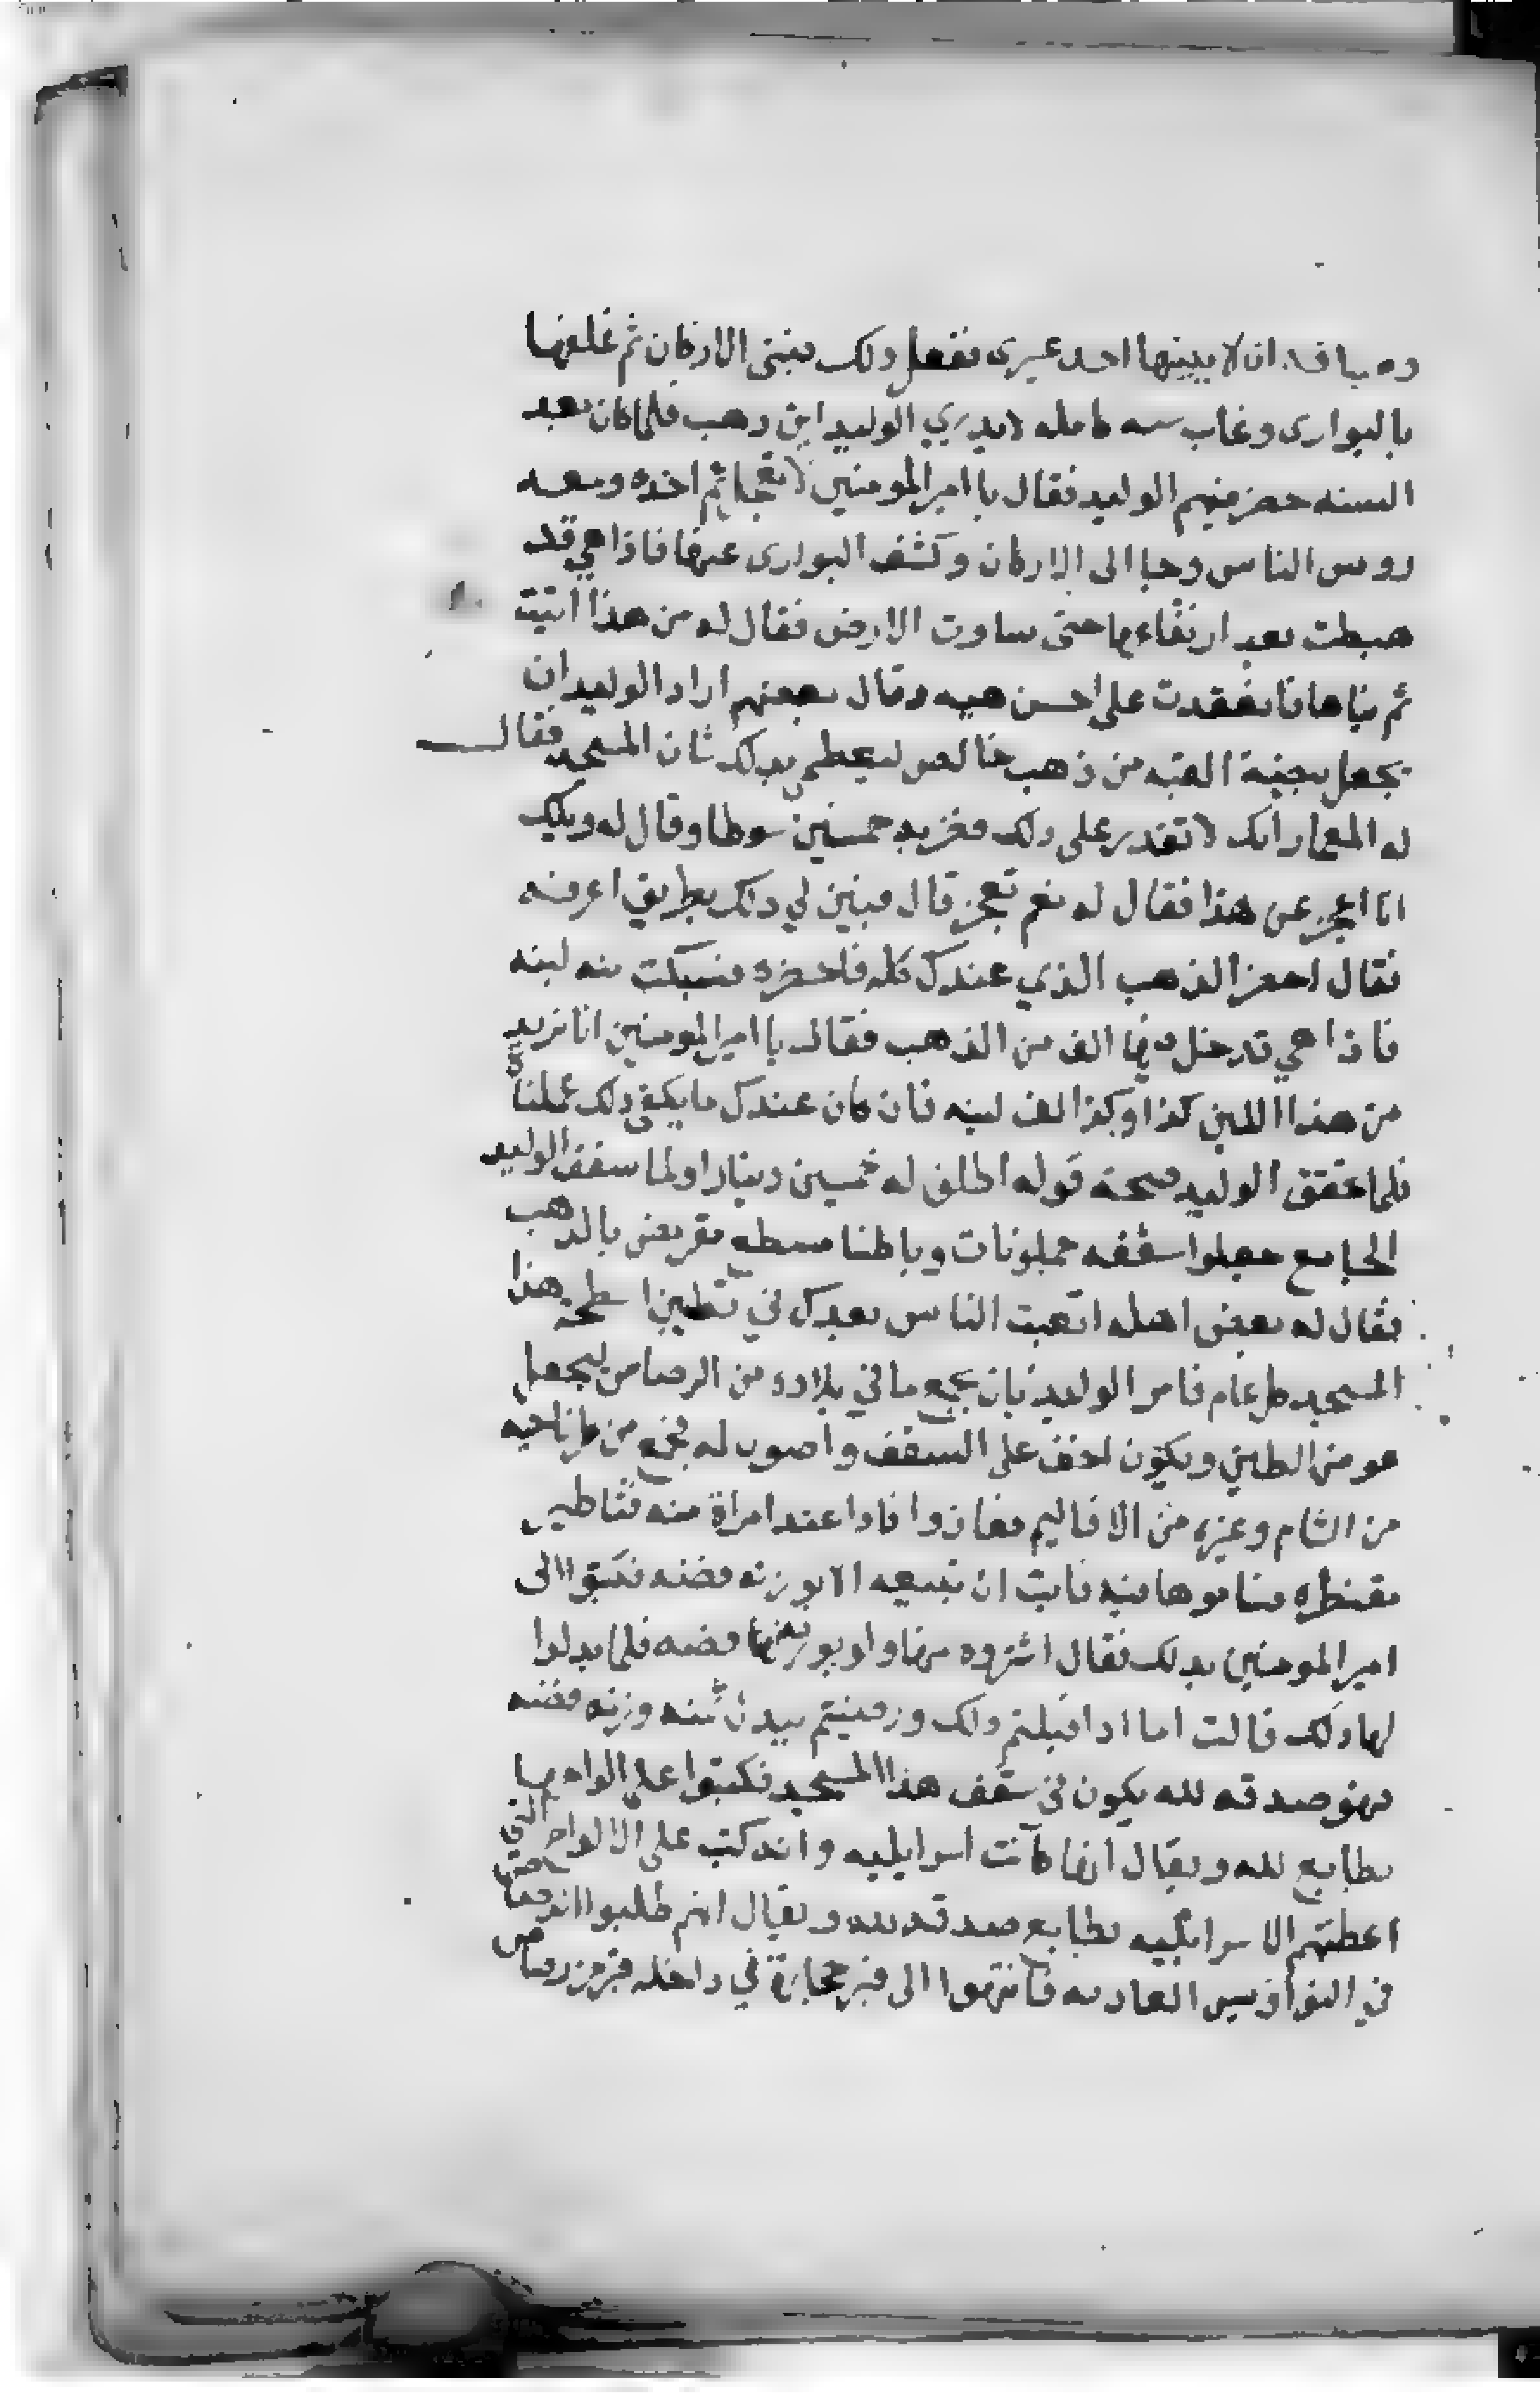 ان لا يبينها احد غيرى ففعل ذلك فبنى الاركان ثم غلفها
بالبوارى وغاب سنه كامله لا يدرى الوليد اين ذهب فلما كان بعد
السنه حضر فهم الوليد فقال يا امير المومنين لا تعجل ثم اخذه ومعه
روس الناس وجا الى الاركان وكشف البوارى عنها فاذا هي قد
هبطت بعد ارتفاعها حتى ساوت الارض فقال له من هذا اتيت
ثم بناها فانعقدت على احسن هيه وقال بعضهم اراد الوليد ان
يجعل بيضة القبه من ذهب خالص ليعظم بذلك شان المسجد فقال
له المعمار انك لا تقدر على ذلك فضربه خمسين سوطا وقال له ويلك
انا اعجز عن هذا فقال له نعم تعجز قال فبين لي ذلك بطريق اعرفه
فقال احضر الذهب الذي عندك كله فاحضره فسبكت منه لبنه
فاذا هي قد دخل فيها الف من الذهب فقال يا امير المومنين انا نريد
من هذا اللبن كذا وكذا الف لبنه فان كان عندك ما يكفي ذلك عملنا
فلما تحقق الوليد صحة قوله اطلق له خمسين دينارا ولما سقف الوليد
الجامع جعلوا سقفه جملونات وباطنها مسطح مقرنص بالذهب
فقال له بعض اهله اتعبت الناس بعدك في تطيين اسطحة هذا
المسجد كل عام فامر الوليد بان يجمع ما في بلاده من الرصاص ليجعل
عوض الطين ويكون اخف على السقف واصوب له فجمع من كل ناحيه
من الشام وغيره من الاقاليم فعازوا فاذا عند امراة منه قناطير
مقنطره فساموها فيه فابت ان تبيعه الا بوزنه فضه فكتبوا الى
امير المومنين بذلك فقال اشتروه منها ولو بوزنها فضه فلما بذلوا
لها ذلك قالت اما اذا قبلتم ذلك ورضيتم ببذل ثمنه وزنه فضه
فهو صدقه لله يكون في سقف هذا المسجد فكتبوا على الواحها
بطابع لله ويقال انها كانت اسرايليه وانه كتب على الالواح التي
اعطتهم الاسرايليه بطابع صدقه لله ويقال انهم طلبوا الرصاص حتى
في النواويس العاديه فانتهوا الى قبر حجارة في داخله قبر من رصاص